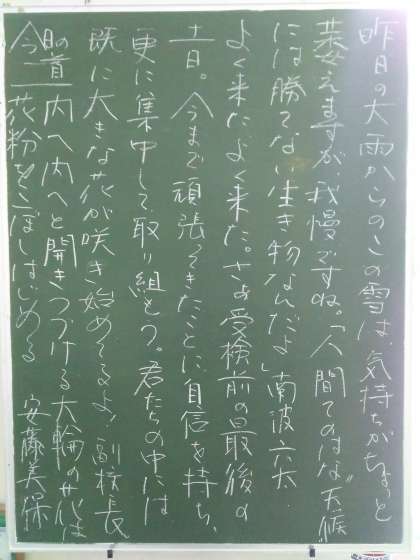 昨日の大雨からのこの雪は、気持ちがちょっと
萎えますが、我慢ですね。「人間てのはな〝天候〟
には勝てない生き物なんだよ」南波六太
よく来た、よく来た。さあ受検前の最後の
土日。今まで頑張ってきたことに自信を持ち、
更に集中して取り組もう。君たちの中には
既に大きな花が咲き始めてるよ！副校長
今日の一首 内へ内へと開きつづける大輪の花は
花粉をこぼしはじめる 安藤美保